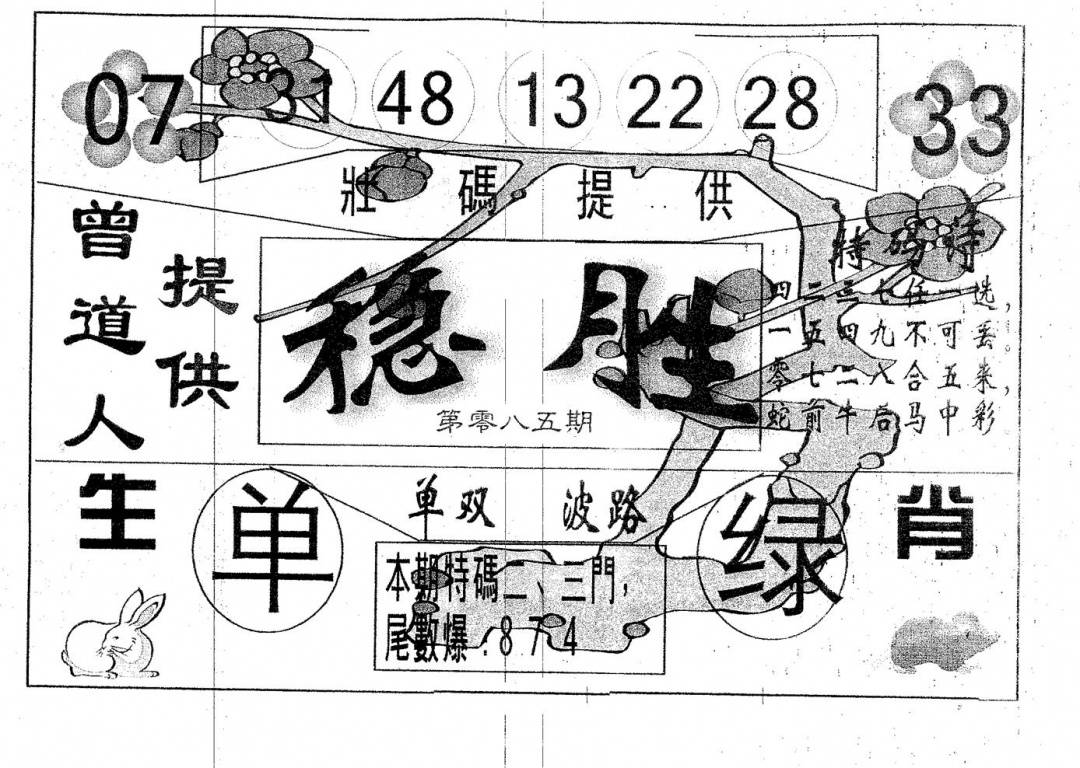 07 31 48 13 22 28 33
壯碼提供
曾道人
提供
特码诗
四二三七任一选，
一五四九不可丢。
零七二八合五来，
蛇前牛后马中彩
稳胜
第零八五期
生肖
单
单双 波路
绿
本期特碼二、三門，
尾數爆：874